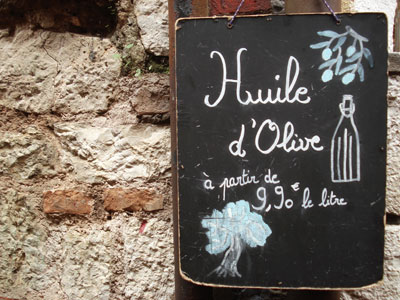 Huile
d'Olive
à partir de
9,90€ le litre